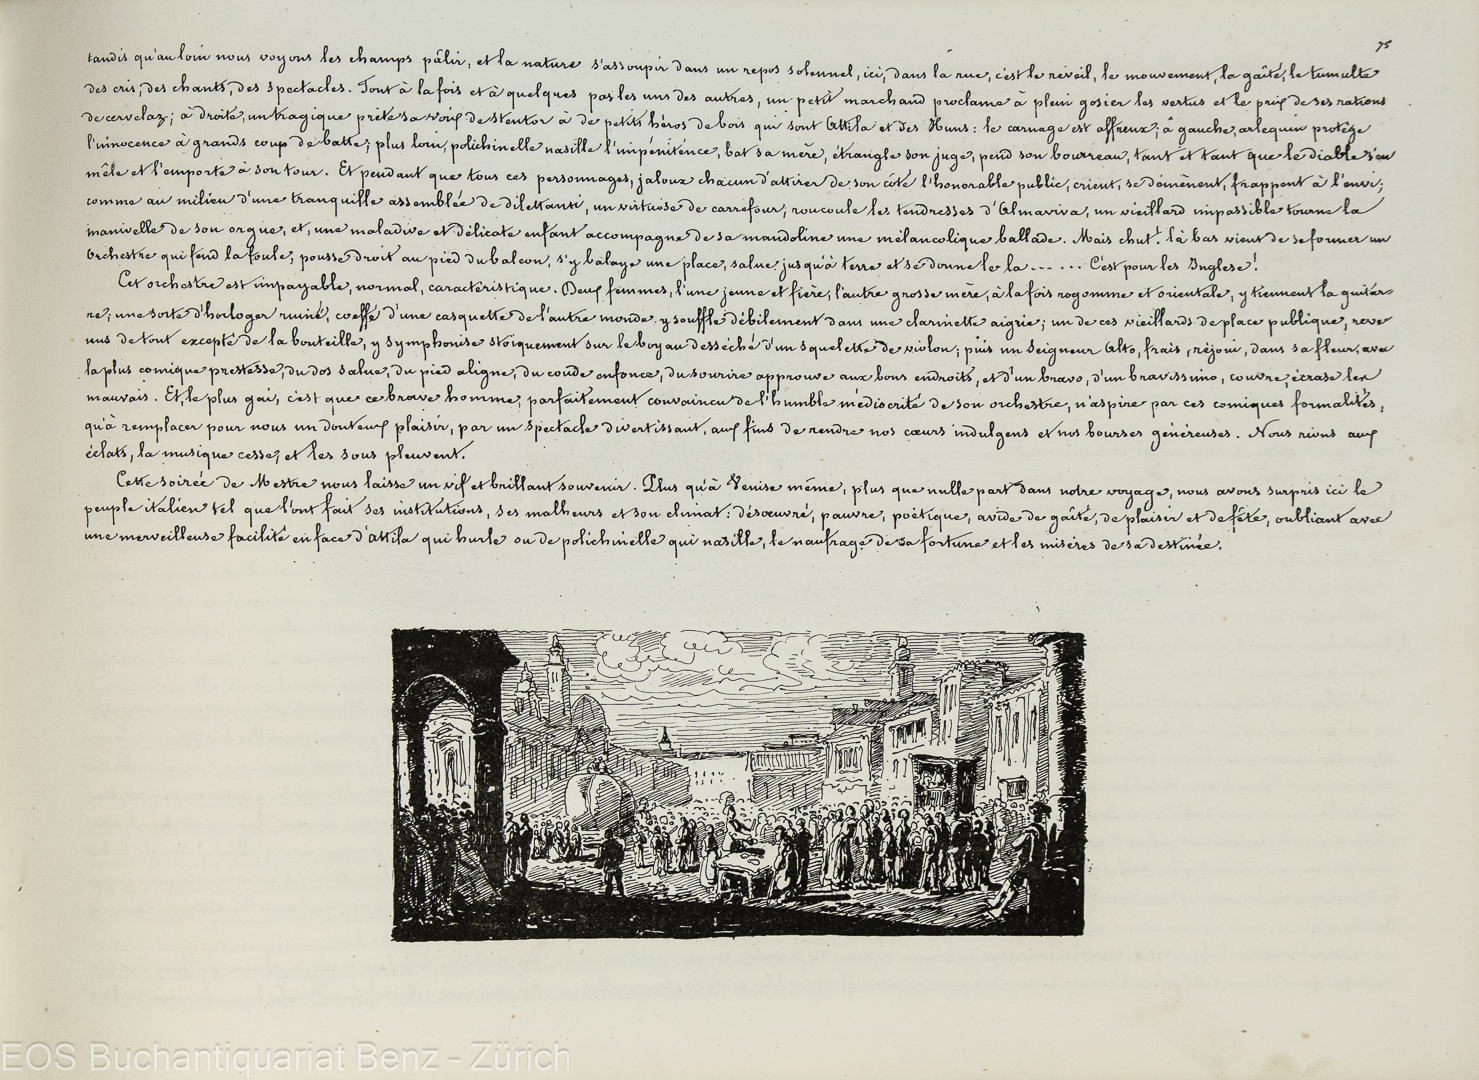 75
tandis qu'au loin nous voyons les champs pâlir, et la nature s'assoupir dans un repos solennel, ici, dans la rue, c'est le réveil, le mouvement, la gaîté, le tumulte
des cris, des chants, des spectacles. Tout à la fois et à quelques pas les uns des autres, un petit marchand proclame à plein gosier les vertus et le prix de ses rations
de cervelaz; à droite, un tragique prête sa voix de stentor à de petits héros de bois qui sont Attila et des Huns: le carnage est affreux; à gauche, arlequin protège
l'innocence à grands coup de batte; plus loin, polichinelle nasille l'impénitence, bat sa mère, étrangle son juge, pend son bourreau, tant et tant que le diable s'en
mêle et l'emporte à son tour. Et pendant que tous ces personnages, jaloux chacun d'attirer de son côté l'honorable public, crient, se démènent, frappent à l'envi;
comme au milieu d'une tranquille assemblée de dilettanti, un virtuose de carrefour, roucoule les tendresses d'Almaviva, un vieillard impassible tourne la
manivelle de son orgue, et, une maladive et délicate enfant accompagne de sa mandoline une mélancolique ballade. Mais chut! là bas vient de se former un
orchestre qui fend la foule, pousse droit au pied du balcon, s'y balaye une place, salue jusqu'à terre et se donne le la ...... C'est pour les Inglese!
Cet orchestre est impayable, normal, caractéristique. Deux femmes, l'une jeune et fière, l'autre grosse mère, à la fois rogomme et orientale, y tiennent la guitar-
re; une sorte d'horloger ruiné, coeffé d'une casquette de l'autre monde y souffle débilement dans une clarinette aigrie; un de ces vieillards de place publique, reve
nus de tout excepté de la bouteille, y symphonise stoïquement sur le boyau desséché d'un squelette de violon; puis un seigneur Alto, frais, réjoui, dans sa fleur, avec
la plus comique prestesse, du dos salue, du pied aligne, du coude enfonce, du sourire approuve aux bons endroits, et d'un bravo, d'un bravissimo, couvre, écrase les
mauvais. Et, le plus gai, c'est que ce brave homme, parfaitement convaincu de l'humble médiocrité de son orchestre, n'aspire par ces comiques formalités,
qu'à remplacer pour nous un douteux plaisir, par un spectacle divertissant, aux fins de rendre nos cœurs indulgens et nos bourses généreuses. Nous rions aux
éclats, la musique cesse, et les sous pleuvent.
Cette soirée de Mestre nous laisse un vif et brillant souvenir. Plus qu'à Venise même, plus que nulle part dans notre voyage, nous avons surpris ici le
peuple italien tel que l'ont fait ses institutions, ses malheurs et son climat: désœuvré, pauvre, poëtique, avide de gaîté, de plaisir et de fête, oubliant avec
une merveilleuse facilité en face d'attila qui hurle ou de polichinelle qui nasille, le naufrage de sa fortune et les misères de sa destinée.
EOS Buchantiquariat Benz - Zürich